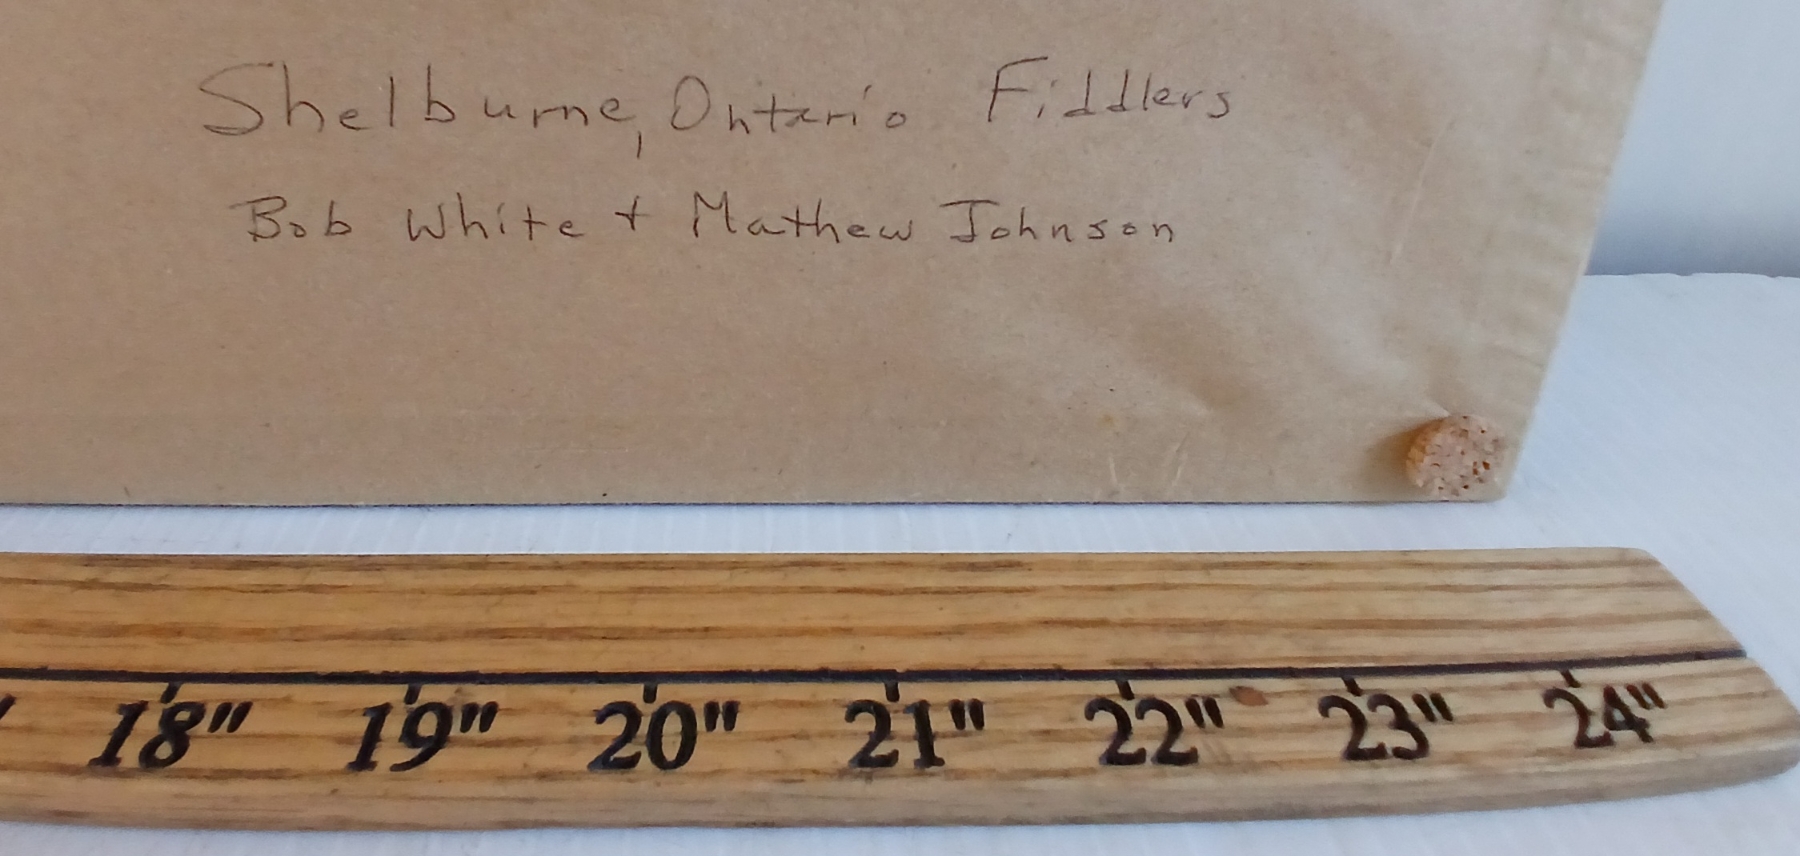 Shelburne, Ontario Fiddlers
Bob White + Mathew Johnson
18" 19" 20" 21" 22" 23" 24"